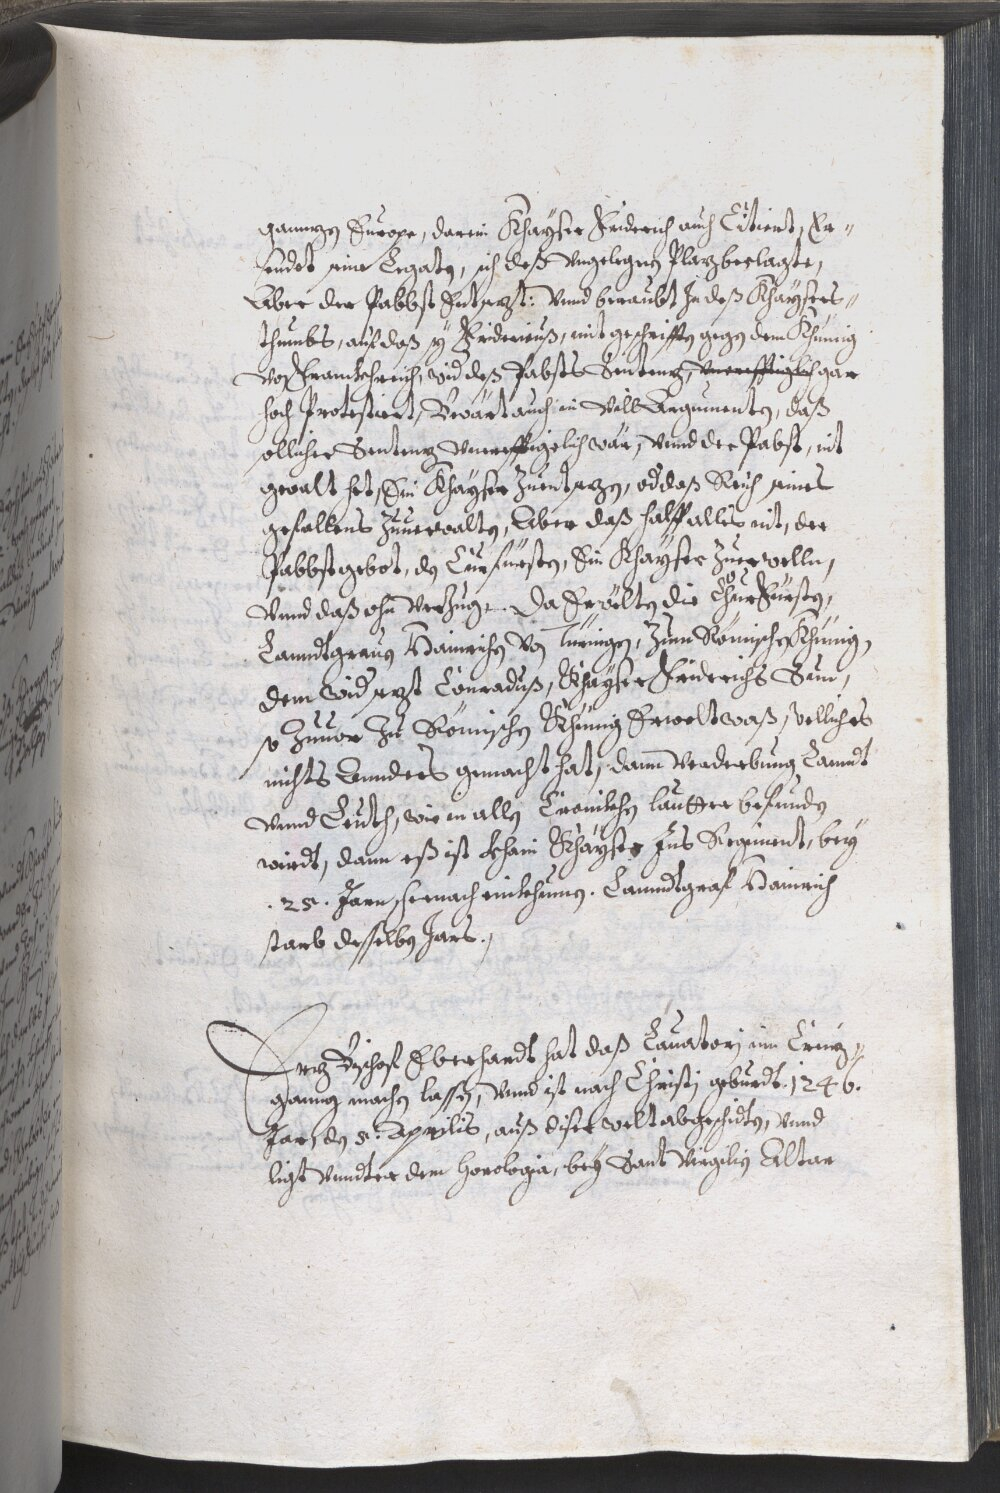 ganntzen Europe, darein Khayser Friderich auch Citiert, Er-
sendet seine Legaten, sich deß ungelegnen Platz beclagte,
Aber der Pabbst Entsezt: Unnd beraubt In deß Khaysers-
thumbs, auf daß sich Fridericuß, mit geschrifften gegen dem Khünig
von Franckhreich, wider deß Pabsts Sententz, gar
hoch Protestiert, Bewärt auch in vill Argumenten, daß
sollicher Sententz Unvereffigelich wär, Unnd der Pabst, nit
gewalt het, Ein Khayser Zuentsezen, oder daß Reich seines
gefallens Zuuerwalten, Aber daß halff alles nit, der
Pabbst gebot, den Curfürsten, Ein Khayser Zuerwellen,
Unnd daß ohn Verzug. Da Erwölten die ChurFürsten,
Lanndtgrauen Hainrichen Von Türingen, Zum Römischen Khünig,
dem widersezt Conraduß, Khayser Friderichs Sun,
so Zuuor Zu Römischen Khünig Erwelt waß, wellches
nichts Annders gemacht hat, dann Verderbung Lanndt
Unnd Leuth, wie in allen Cronikhen lautter befunden
wirdt, dann eß ist khain Khayser Ins Regiment, bey
.25. Jarn, hernach einkhumen. Lanndtgraf Hainrich
starb desselben Jars.
Ertz Bischof Eberhardt hat daß Lauatorj im Creütz-
ganng machen lassen, Unnd ist nach Christj geburdt .1246.
Jar, den 5. Aprilis, auß diser welt abgeschidten, Unnd
ligt Unndter dem Horologia, bey Sant Virgilij Altar